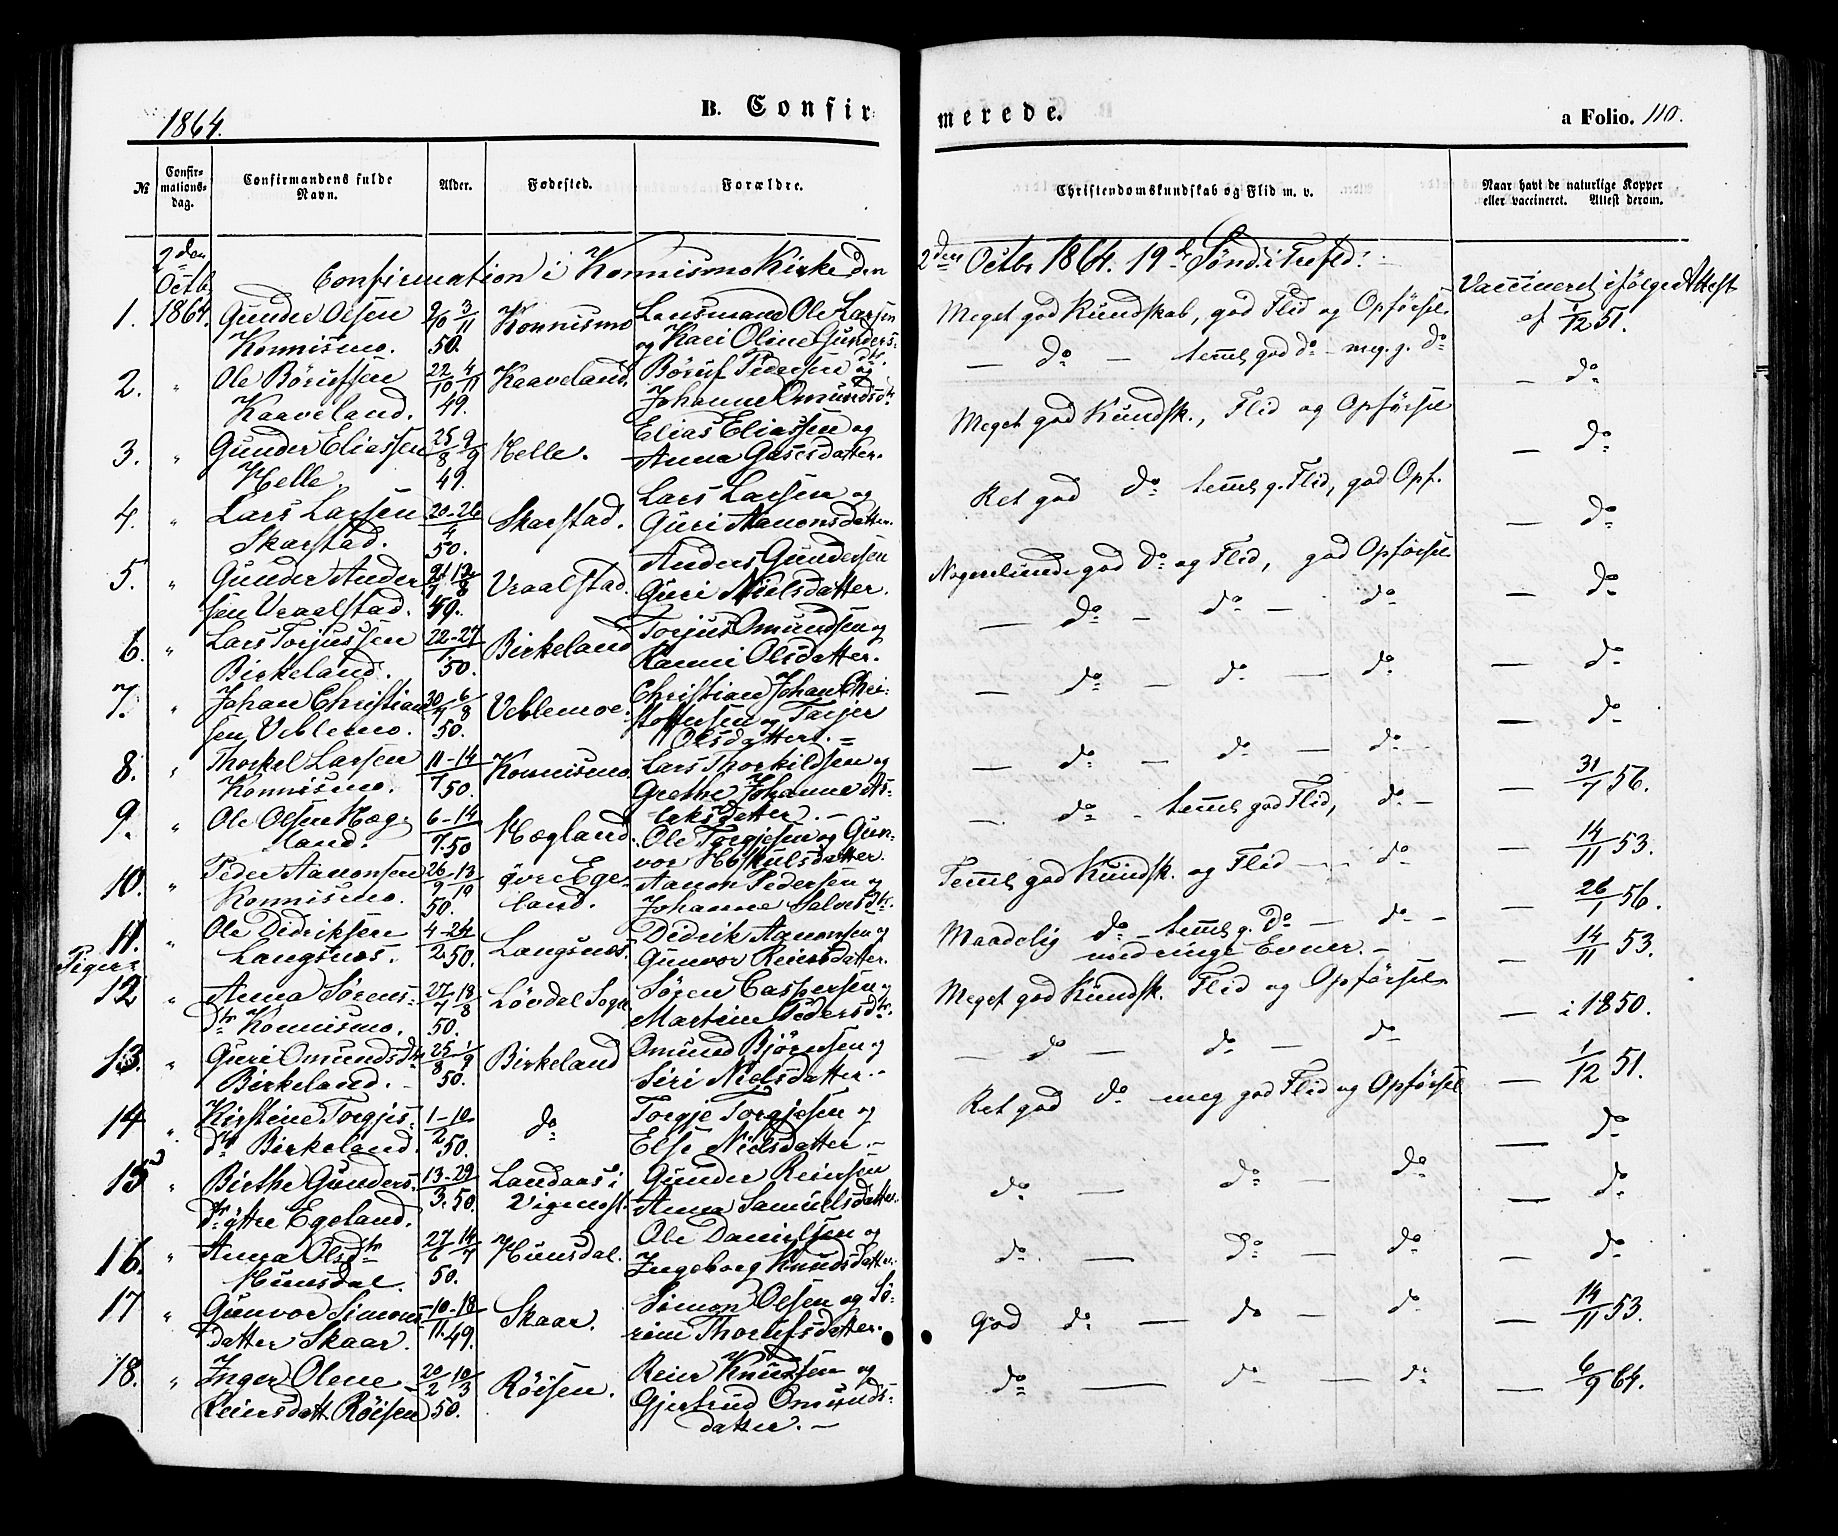 1864.
B. Confir
merede.
a Folio. 110.
No
Confir-
mations-
dag.
Confirmandens fulde
Navn.
Alder.
Fødested.
Forældre.
Christendomskundskab og Flid m. v.
Naar havt de naturlige Kopper
eller vaccineret. Attest derom.
2den
Octb.
1864.
Confirmation i Konnismo Kirke den
2den Octbr 1864. 19de Sønd. i Trefld:
1. Gunder Olsen
Konnismo.
50.
Konnismo
Lensmand Ole Larsen
og Kari Oline Gunders-
dtr.
Meget god Kundskab, god Flid og Opførsel.
Vaccineret ifølge Attest
af 1/12 51.
2. " Ole Børufsen
Kaaveland.
22/10 4/11
49.
Kaaveland.
Børuf Pedersen og
Johanne Omundsdtr
— do — teml. god do — meg. g. do
— do
3. " Gunder Eliassen
Helle.
25/8 9/9
49.
Helle.
Elias Eliassen og
Anna Gasesdatter.
Meget god Kundsk., Flid og Opførsel
— do
4. " Lars Larsen
Skarstad.
20-26/4
50.
Skarstad.
Lars Larsen og
Guri Aanonsdatter.
Ret god do teml. g. Flid, god Opf.
— do
5. " Gunder Ander
sen Vraalstad.
49.
Vraalstad
Anders Gundersen
Guri Nielsdatter.
Nogenlunde god do og Flid, god Opførsel
— do
6. " Lars Torjussen
Birkeland.
22-27/1
50.
Birkeland
Torjus Omundsen og
Ranni Olsdatter.
— do — do — do
— do
7. " Johan Christian
sen Veblemo.
30/7 6/8
50.
Veblemoe.
Christian Johan Chri-
stoffersen og Tarjer
Olsdatter. =
— do — do — do
— do
8. " Thorkel Larsen
Konnismo.
11-14/1
50.
Konnismo.
Lars Thorkildsen og
Grethe Johanne As-
laksdatter. —
— do — do — do
— 31/7 56.
9. " Ole Olsen Hæg-
land.
6-14/7
50
Hægland.
Ole Torgjesen og Gun-
vor Høskulsdatter.
— do — teml. god Flid, do —
— 14/11 53.
10. " Peder Aanonsen
Konnismo.
26/9 13/10
50.
øvre Ege-
land.
Aanon Pedersen og
Johanne Salvesdtr.
Teml. god Kundsk. og Flid — do
— 26/1 56.
11. " Ole Didriksen
Langsnøs.
4-24/2
50.
Langsnøs.
Didrik Aanonsen og
Gunvor Reiersdatter.
Maadelig do — teml. g. do — do —
med ringe Evner. —
— 14/11 53.
Piger:
12 " Anna Sørens-
dtr Konnismo.
27/7 18/8
50.
Løvdal Sogn
Søren Caspersen og
Martine Pedersdtr.
Meget god Kundsk. Flid og Opførsel
— i 1850.
13. " Guri Omundsdtr
Birkeland. —
25/8 1/9
50.
Birkeland
Omund Bjørnsen og
Siri Nielsdatter. —
— do — do — do
— 1/12 51.
14 " Kirstine Torgjes-
dtr Birkeland.
1-10/2
50.
do
Torgje Torgjesen og
Else Nielsdatter. —
Ret god do meg god Flid og Opførsel
— do
15 " Birthe Gunders-
dtr øvre Egeland.
13-29/3
50.
Landaas i
Vigmost.
Gunder Reiersen
Anna Samuelsdatter.
do — do — do
— do
16. " Anna Olsdtr
Hunsdal.
27/6 14/7
50.
Hunsdal.
Ole Danielsen og
Ingeborg Knudsdatter.
do — do — do
— do
17 " Gunvor Simons-
datter Skaar.
10-18/11
49.
Skaar.
Simon Olsen og Sø-
rine Thorufsdatter.
God do — do — do
— 14/11 53.
18. " Inger Olene
Reiersdatt. Röisen
20/2 10/3
50.
Röisen.
Reier Knudsen og
Gjertrud Omunds-
datter. —
do — do — do
— 6/9 64.